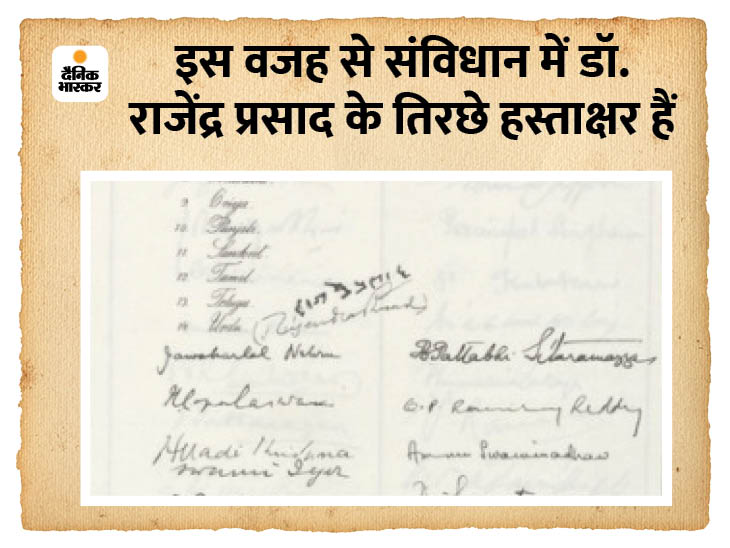 इस वजह से संविधान में डॉ.
दैनिक भास्कर
राजेंद्र प्रसाद के तिरछे हस्ताक्षर हैं
9 Oriya
10 Punjabi
11 Sanskrit
12 Tamil
13 Telugu
14 Urdu
(Rajendra Prasad)
Jawaharlal Nehru
B Pattabhi Sitaramayya
Reddy
Alladi Krishna
swami Iyer
Ammu Swaminadhan